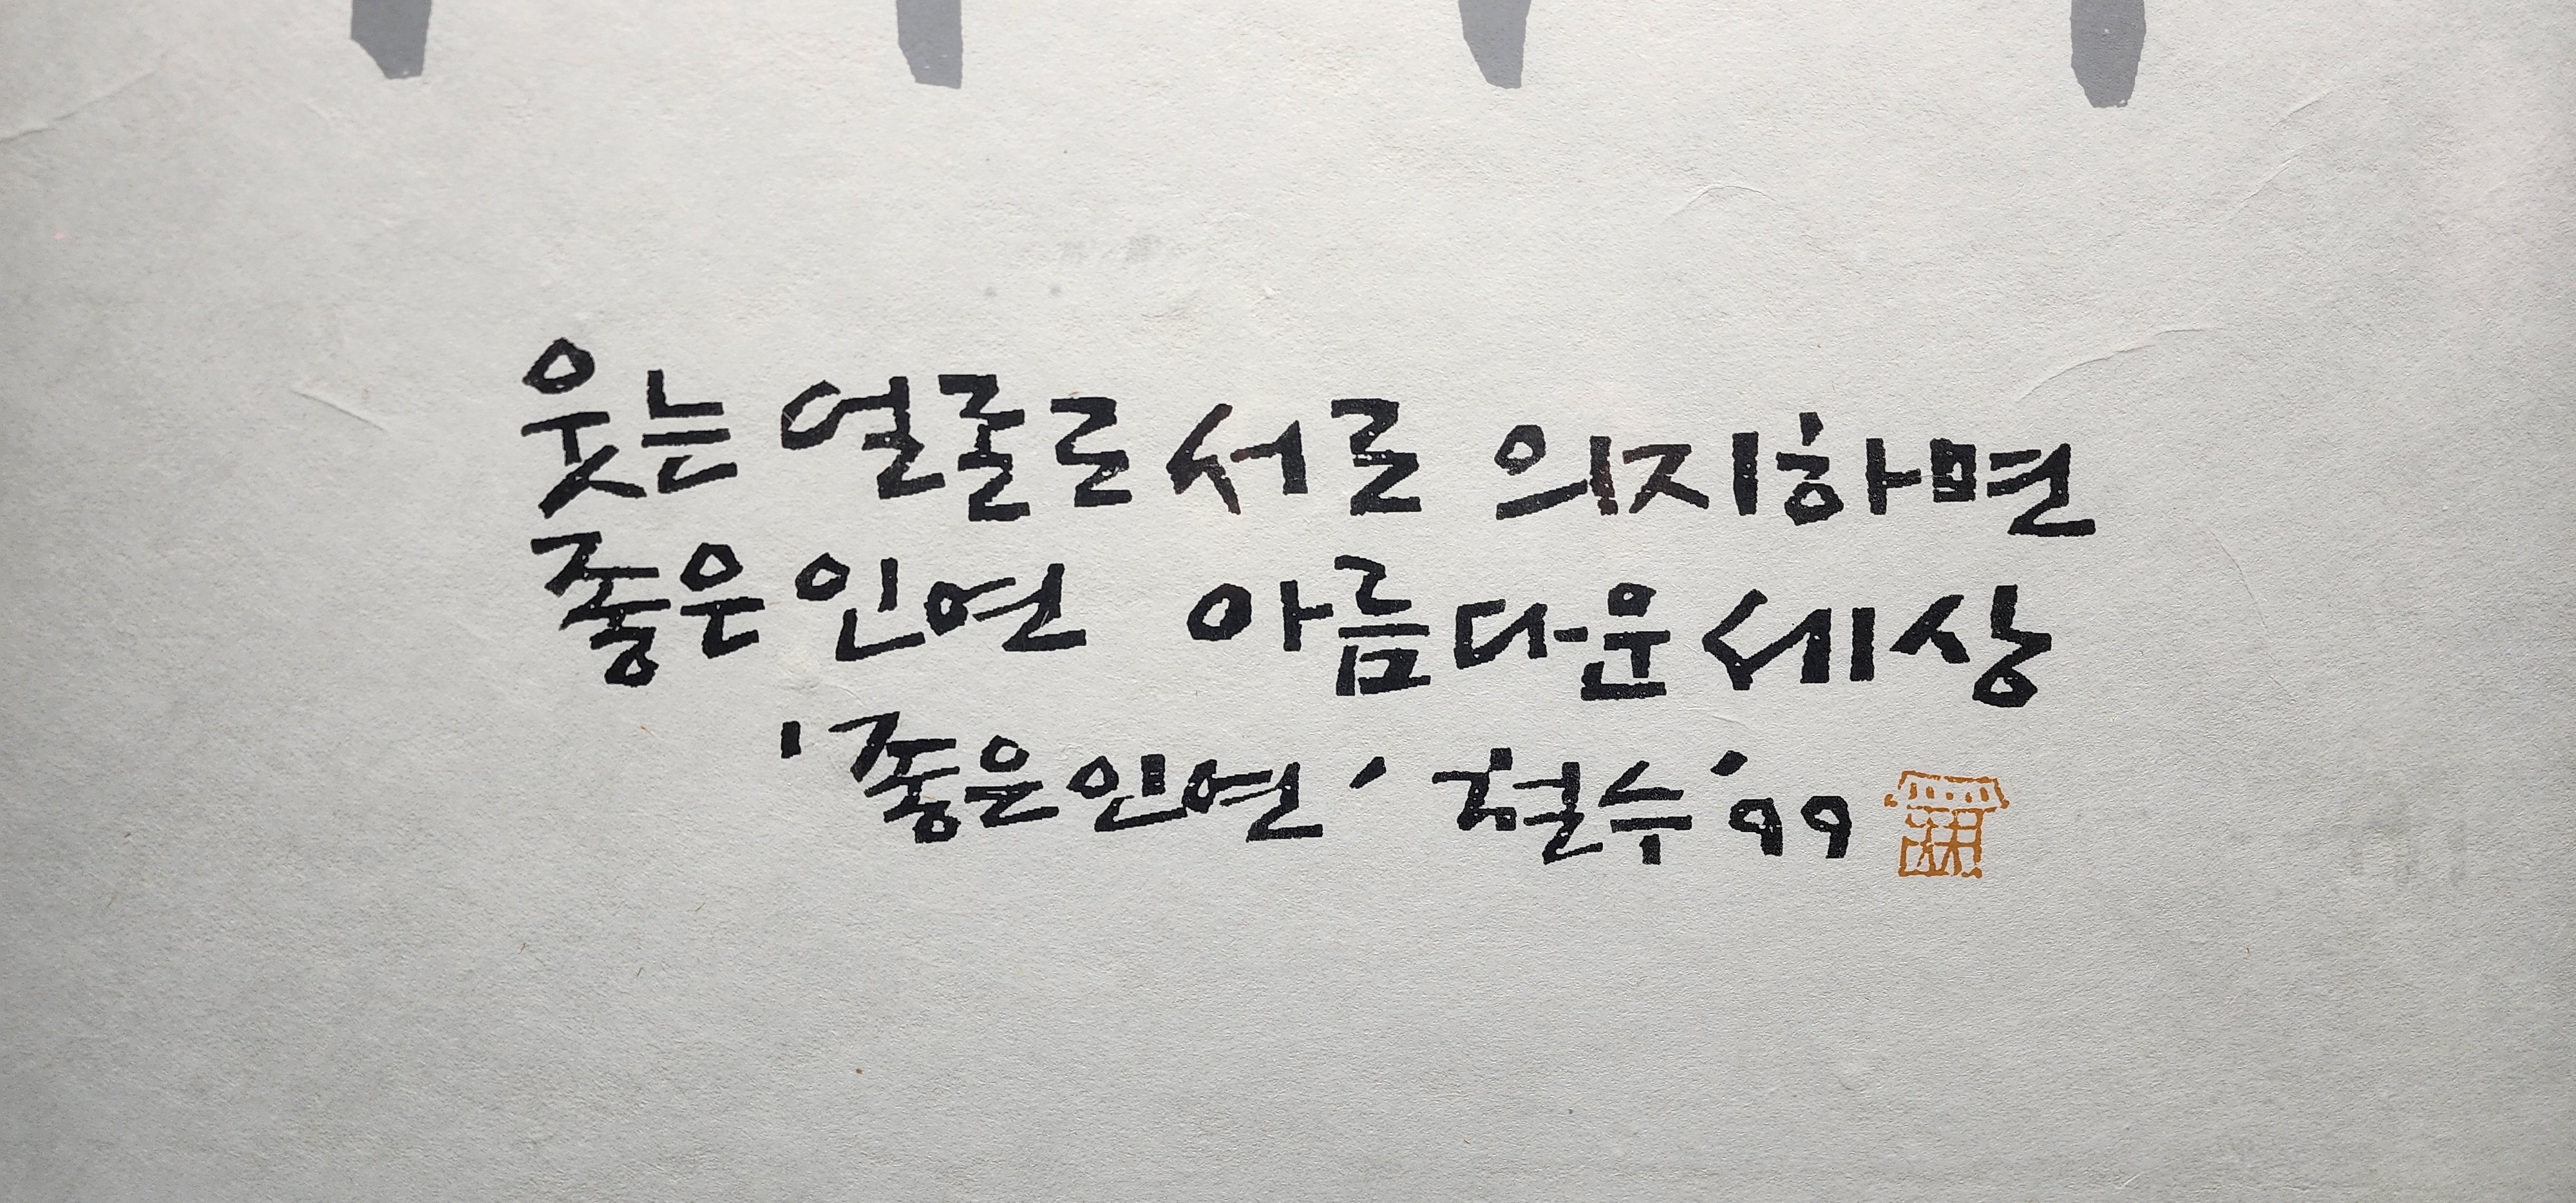 웃는 얼굴로 서로 의지하면
좋은 인연 아름다운 세상
'좋은인연' 철수 '99